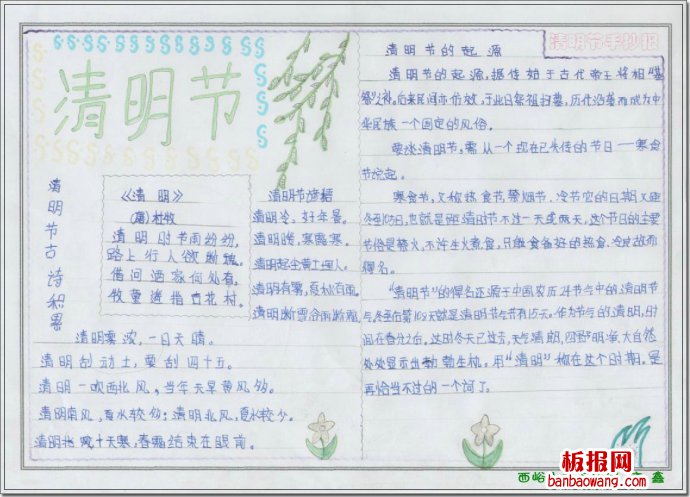 清明节
清明节手抄报
清明节古诗积累
《清明》
(唐)杜牧
清明时节雨纷纷,
路上行人欲断魂。
借问酒家何处有,
牧童遥指杏花村。
清明节谚语
清明冷,好年景。
清明暖,寒露寒。
清明起尘黄土埋人。
清明有雾,夏秋有雨。
清明断雪谷雨断霜
清明雾浓,一日天晴。
清明刮动土,要刮四十五。
清明一吹西北风,当年天旱黄风多。
清明南风,夏水较多;清明北风,夏水较少。
清明 十天寒,春霜结束在眼前。
清明节的起源
清明节的起源,据传始于古代帝王将相“墓
祭”之礼,后来民间亦仿效,于此日祭祖扫墓,历代沿袭而成为中
华民族一个固定的风俗。
要谈清明节,需从一个现在已失传的节日——寒食
节说起。
寒食节,又称熟食节,禁烟节,冷节它的日期,又距
冬至105日,也就是距清明节不过一天或两天,这个节日的主要
节俗是禁火,不许生火煮食,只能食备好的热食,冷食故而
得名。
“清明节”的得名还源于中国农历24节气中的清明节
气冬至后第108天就是清明节气节有15天。作为节气的清明,时
间在春分之后,这时冬天已过去,天气清朗,四野明净,大自然
处处显示出勃勃生机。用“清明”称在这个时期,是
再恰当不过的一个词了。
西峪
鑫
板报网
banbaowang.com